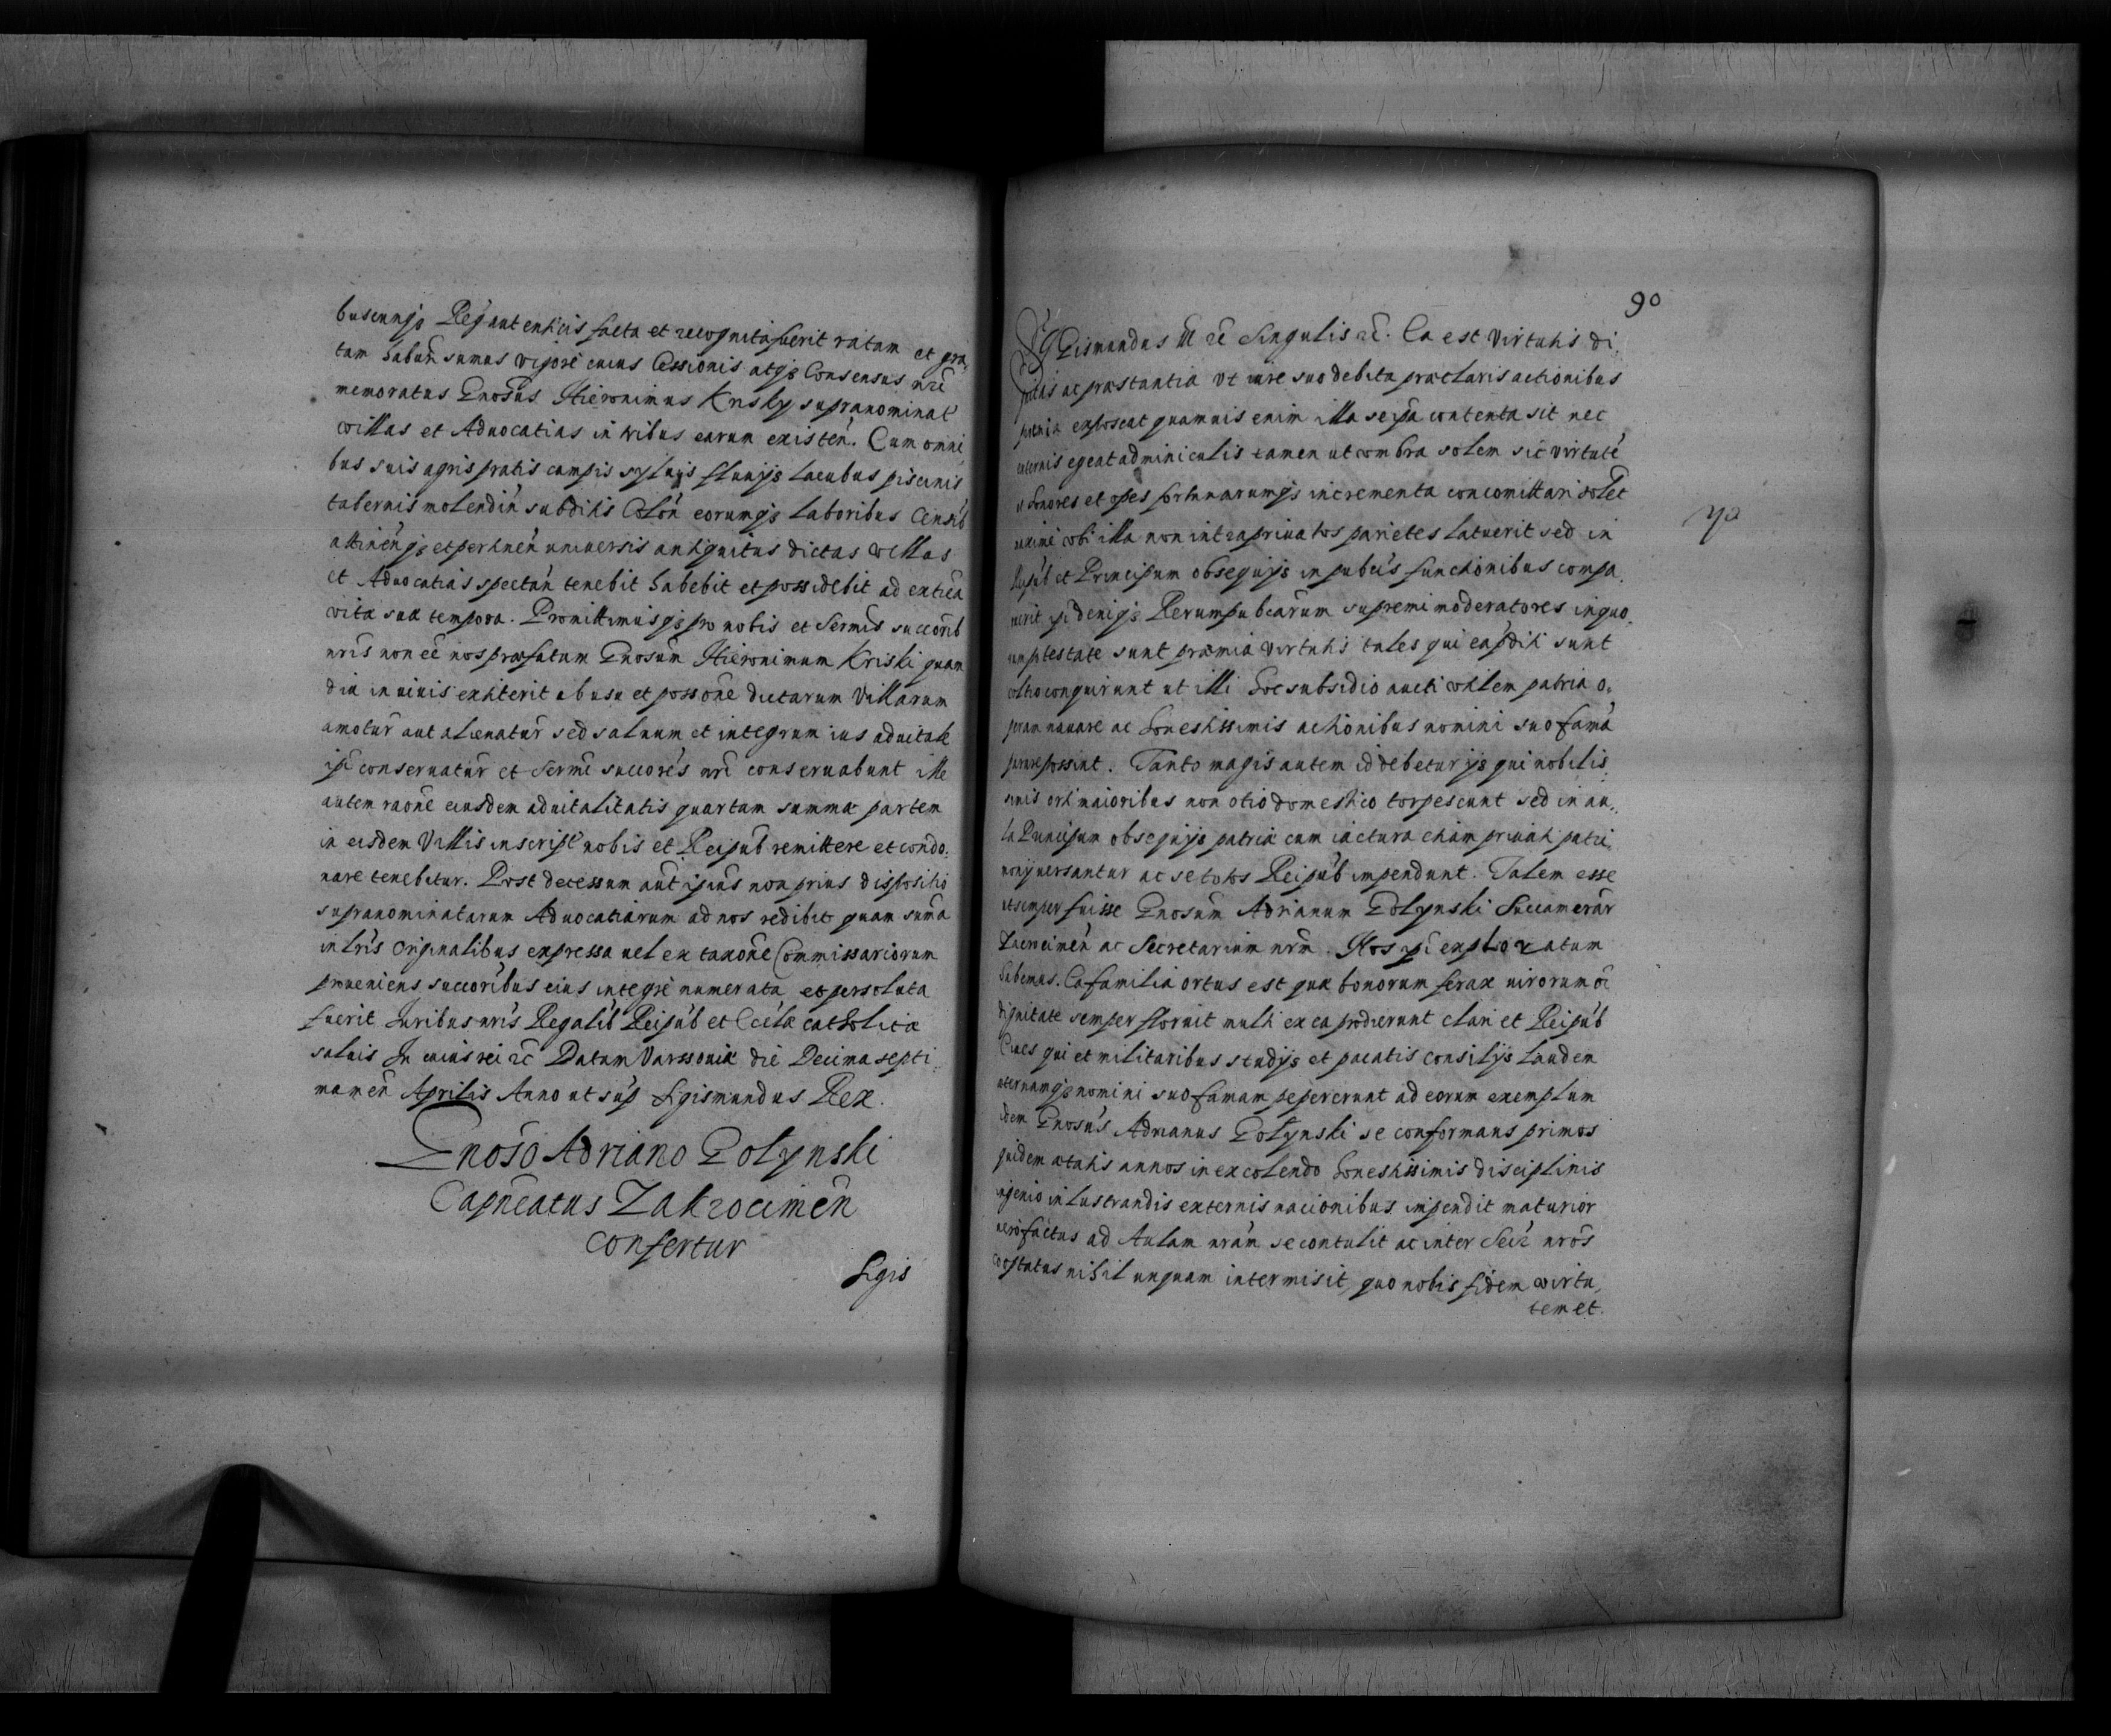 buscunqȝ Reg autenticis facta et recognita fuerit ratam et gra
tam habūn sumus vigore cuius Cessionis atqȝ Consensus nrī
memoratus Gnosus Hieronimus Krisky supranominat
villas et Aduocatias in tribus earum existen. Cum omni
bus suis agris pratis campis syluis fluuijs lacubus piscinis
tabernis molendin subditis Colon eorumqȝ laboribus Censib
attinenqȝ et pertinen uniuersis antiquitus dictas villas
et Aduocatias spectan tenebit habebit et possidebit ad extrea
vitæ suæ tempora. Promittimusqȝ pro nobis et Sermis succorib
nris non eē nos præfatum Gnosum Hieronimum Kriski quam
diu in viuis extiterit ab usu et possone dictarum Villarum
amotur aut alienatur sed saluum et integrum ius aduitale
ipi conseruatur et Sermi succores nri conseruabunt ille
autem raone eiusdem aduitalitatis quartam summæ partem
in eisdem Villis inscript nobis et Reipub remittere et condo
nare tenebitur. Post decessum aut ipius non prius dispositio
supranominatarum Aduocatiarum ad nos redibit quam suma
in lris originalibus expressa uel ex taxone Commissariorum
proueniens succoribus eius integre numerata et persoluta
fuerit Juribus nris Regalib Reipub et Eccliæ catholicæ
saluis In cuius rei ac Datum Varssouiæ die Decima septi
ma men Aprilis Anno ut sup Sigismundus Rex.
Gnoso Adriano Golynski
Capneatus Zakrocimen
confertur
Sigis
90
Sigismundus III ac Singulis ac. Ea est virtutis di
gnitas ac præstantia vt iure suo debita præclaris actionibus
præmia exposcat quamuis enim illa seipa contenta sit nec
externis egeat adminiculis tamen ut vmbra solem sic virtute
et honores et opes fortunarumqȝ incrementa concomittari solet
maxime vbi illa non intra priuatos parietes latuerit sed in
Reipub et Principum obsequijs in pubcis functionibus compa
ruerit ipi deniqȝ Rerumpubcarum supremi moderatores in quo
rum ptestate sunt præmia virtutis tales qui eapditi sunt
vltro conquirunt ut illi hoc subsidio aucti vtilem patriæ o
peram nauare ac honestissimis actionibus nomini suo fama
parare possint. Tanto magis autem id debetur ijs qui nobilis
simis orti maioribus non otio domestico torpescunt sed in au
la Principum obsequijs patriæ cum iactura etiam priuati patri
monij uersantur ac se totos Reipub impendunt. Talem esse
et semper fuisse Gnosum Adrianum Golynski Succamerar
Zacrocimen ac Secretarium nrm. Nos ipi exploratum
habemus. Ea familia ortus est quæ bonorum ferax uirorum oi
dignitate semper floruit multi ex ea prodierunt clari et Reipub
Ciues qui et militaribus studijs et pacatis consilijs laudem
æternamqȝ nomini suo famam pepererunt ad eorum exemplum
idem Gnosus Adrianus Golynski se conformans primos
quidem ætatis annos in excolendo honestissimis disciplinis
ingenio in lustrandis externis nacionibus impendit maturior
uero factus ad Aulam nram se contulit ac inter Secr nros
cooptatus nihil unquam intermisit, quo nobis fidem virtu
tem et.